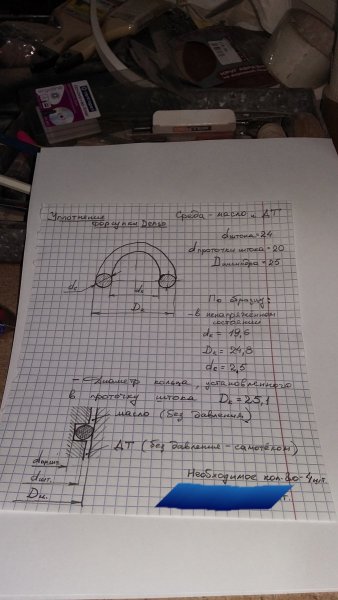 Уплотнение
форсунки Dело
Среда - масло и ДТ
dштока = 24
dпроточки штока = 20
Dцилиндра = 25
dс
dк
Dк
По образцу:
- в ненапряженном
состоянии
dк = 19,6
Dк = 24,8
dс = 2,5
- Диаметр кольца, установленного
в проточку штока, Dк = 25,1
масло (без давления)
ДТ (без давления - самотёком)
dпрот.
dшт.
Dц.
Необходимое кол-во - 4 шт.